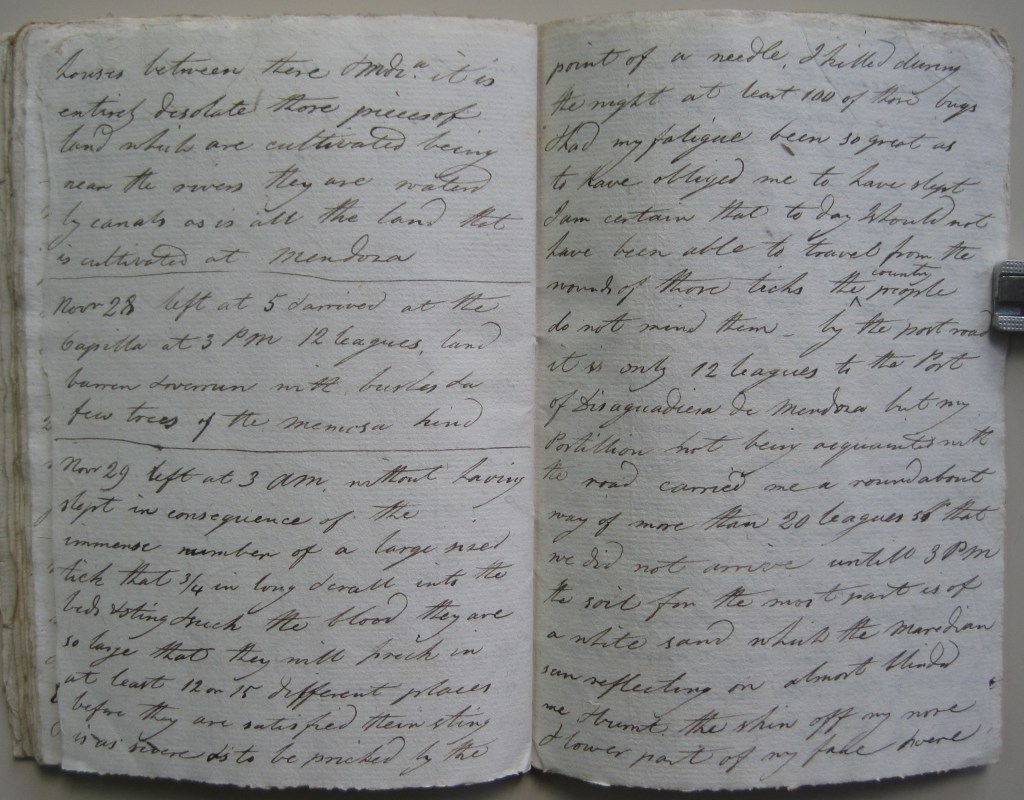 houses between there & Mdz.a it is
entirely desolate those pieces of
land which are cultivated being
near the rivers they are waterd
by canals as is all the land that
is cultivated at Mendoza
Novr 28 left at 5 & arrived at the
Capilla at 3 PM 12 leagues, land
barren & overrun with bushes & a
few trees of the memosa kind
Novr 29 left at 3 am. without having
slept in consequence of the
immense number of a large sized
tick that 3/4 in long & crall into the
beds & sting & suck the blood they are
so large that they will prick in
at least 12 or 15 different places
before they are satisfied their sting
is as severe as to be pricked by the
point of a needle, I killed during
the night at least 100 of these bugs
Had my fatigue been so great as
to have obliged me to have slept
I am certain that to day I should not
have been able to travel from the
wounds of those ticks the country people
do not mind them _ by the post road
it is only 12 leagues to the Post
of Disaguadiesa de Mendoza but my
Postillion not being acquainted with
the road carried me a roundabout
way of more than 20 leagues so that
we did not arrive untill 3 PM
the soil for the most part is of
a white sand which the maredian
sun reflecting on almost blinded
me & burnt the skin off my nose
& lower part of my face & were